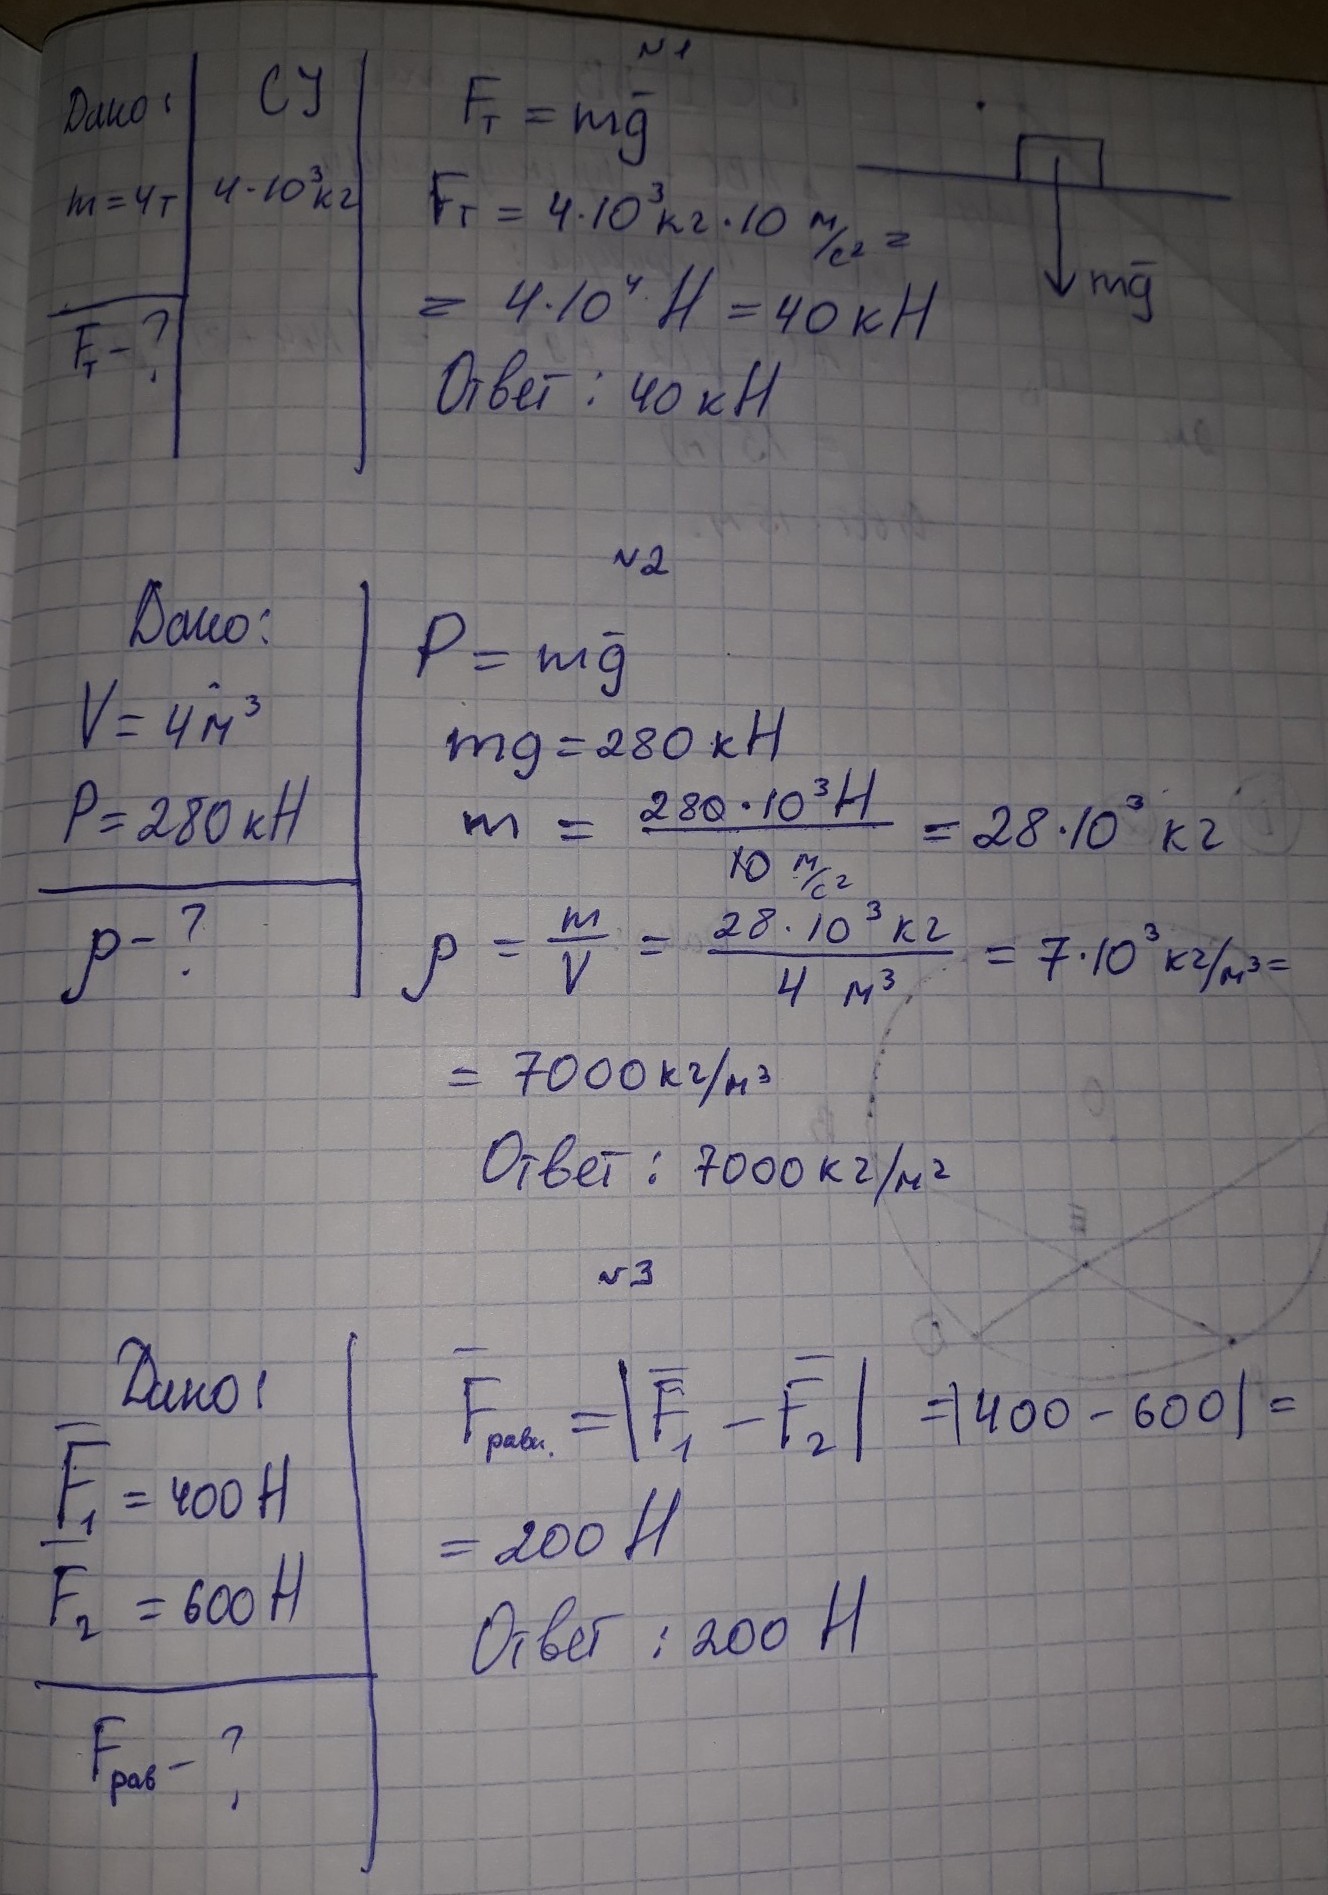 №1
Дано: СИ
m = 4т 4·10³кг
Fт - ?
Fт = mg̅
Fт = 4·10³кг·10 м/с² =
= 4·10⁴ Н = 40 кН
Ответ: 40 кН
mg̅
№2
Дано:
V = 4 м³
P = 280 кН
ρ - ?
P = mg̅
mg = 280 кН
m = 280·10³Н / 10 м/с² = 28·10³ кг
ρ = m/V = 28·10³ кг / 4 м³ = 7·10³ кг/м³ =
= 7000 кг/м³
Ответ: 7000 кг/м²
№3
Дано:
F̅₁ = 400 Н
F̅₂ = 600 Н
Fрав - ?
F̅равн. = |F̅₁ - F̅₂| = |400 - 600| =
= 200 Н
Ответ: 200 Н